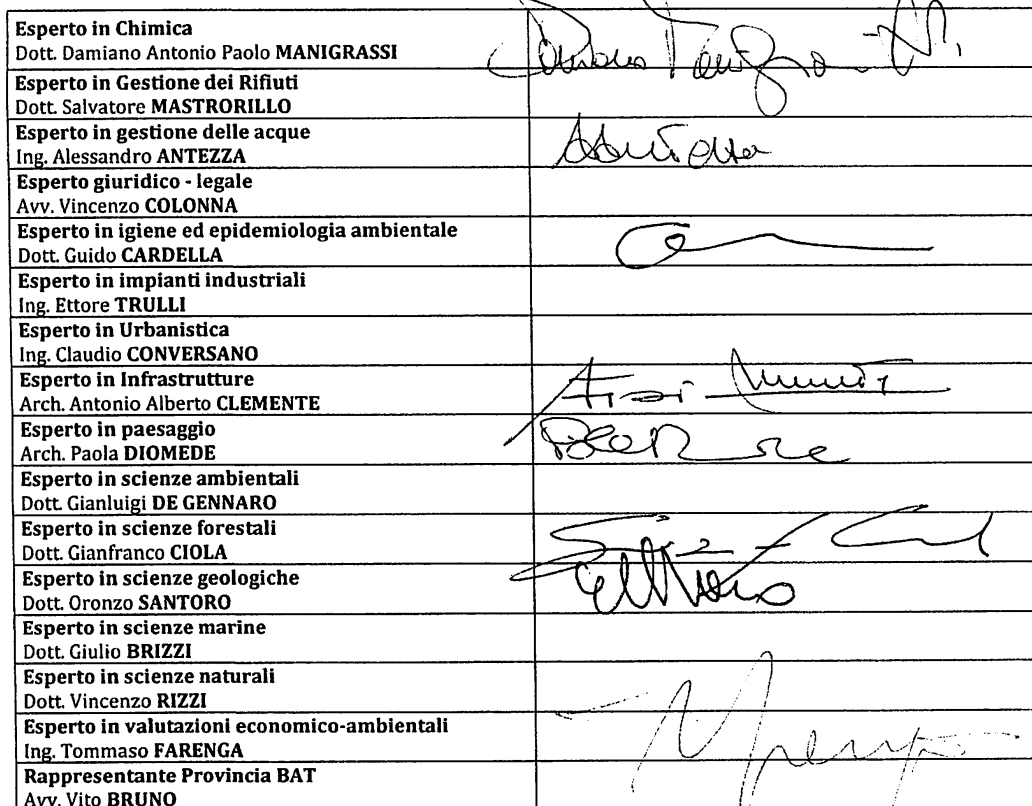 Esperto in Chimica
Dott. Damiano Antonio Paolo MANIGRASSI
Esperto in Gestione dei Rifiuti
Dott. Salvatore MASTRORILLO
Esperto in gestione delle acque
Ing. Alessandro ANTEZZA
Esperto giuridico - legale
Avv. Vincenzo COLONNA
Esperto in igiene ed epidemiologia ambientale
Dott. Guido CARDELLA
Esperto in impianti industriali
Ing. Ettore TRULLI
Esperto in Urbanistica
Ing. Claudio CONVERSANO
Esperto in Infrastrutture
Arch. Antonio Alberto CLEMENTE
Esperto in paesaggio
Arch. Paola DIOMEDE
Esperto in scienze ambientali
Dott. Gianluigi DE GENNARO
Esperto in scienze forestali
Dott. Gianfranco CIOLA
Esperto in scienze geologiche
Dott. Oronzo SANTORO
Esperto in scienze marine
Dott. Giulio BRIZZI
Esperto in scienze naturali
Dott. Vincenzo RIZZI
Esperto in valutazioni economico-ambientali
Ing. Tommaso FARENGA
Rappresentante Provincia BAT
Avv. Vito BRUNO